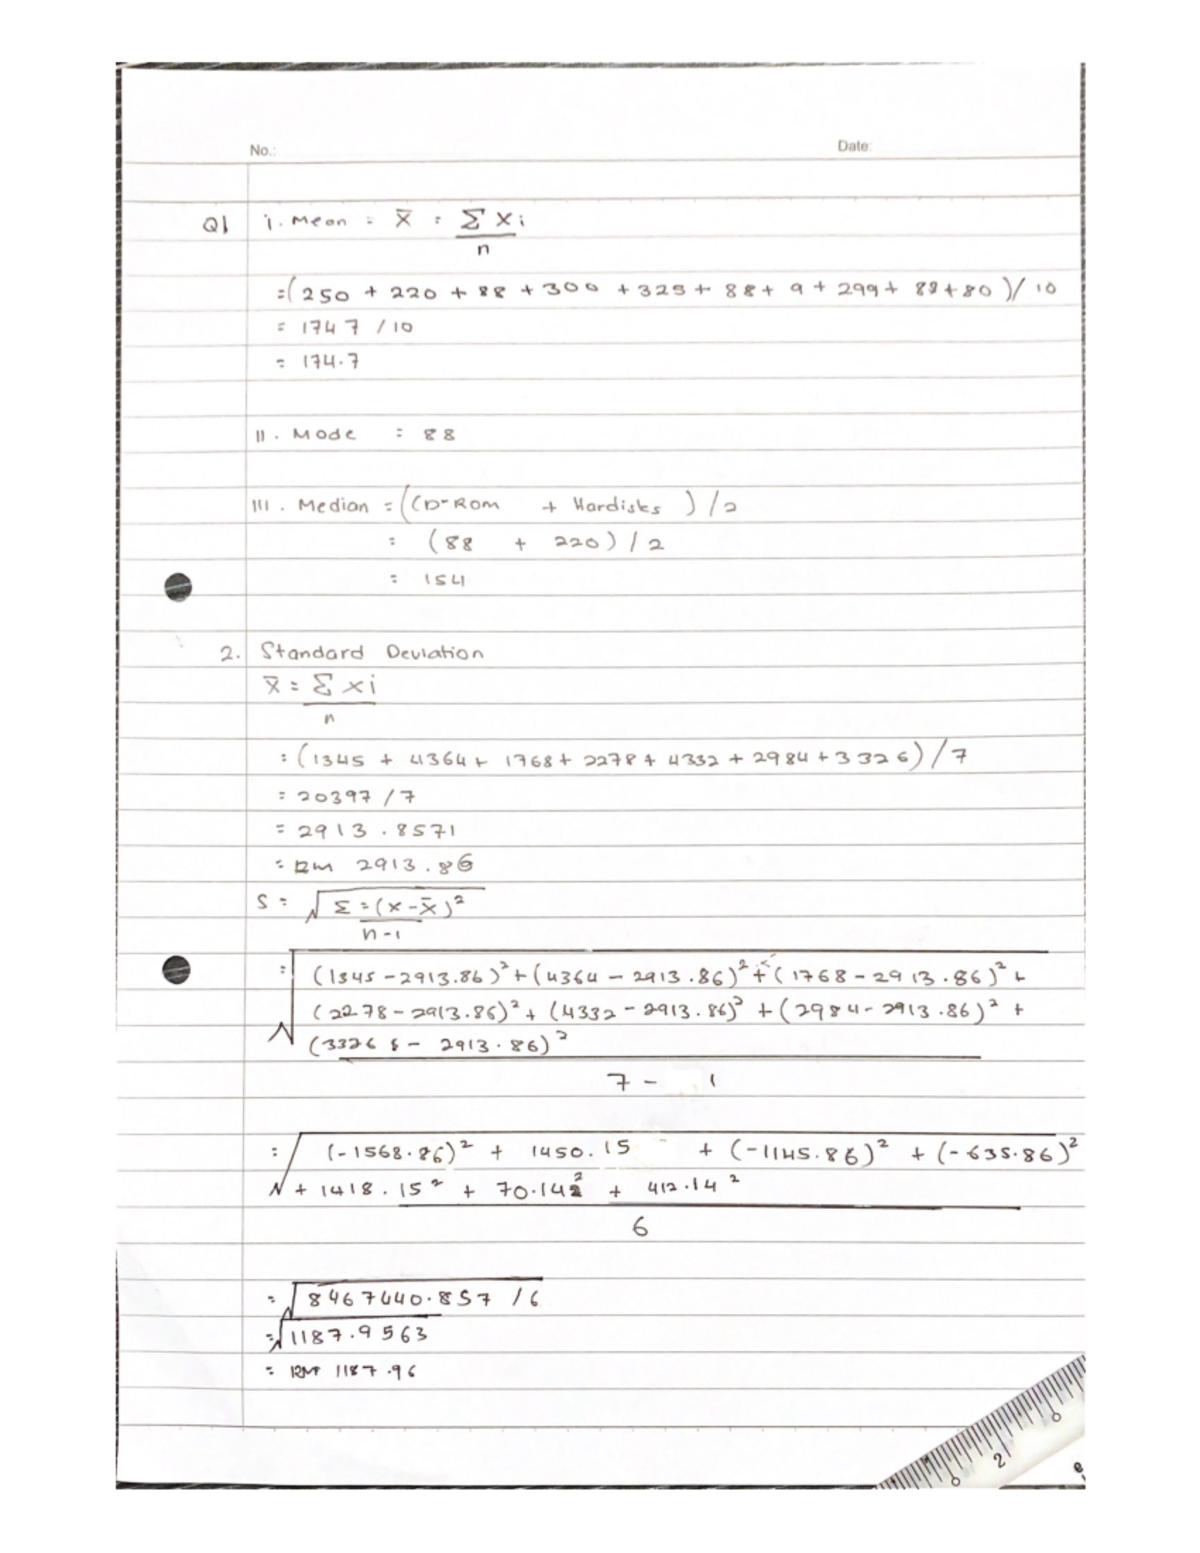 No.: Date:
Q1 i. Mean = x̄ = Σxi
n
= (250 + 220 + 88 + 300 + 325 + 88 + 9 + 299 + 88 + 80) / 10
= 1747 / 10
= 174.7
II. Mode = 88
III. Median = (CD-Rom + Hardisks) / 2
= (88 + 220) / 2
= 154
2. Standard Deviation
x̄ = Σxi
n
= (1345 + 4364 + 1768 + 2278 + 4332 + 2984 + 3326) / 7
= 20397 / 7
= 2913.8571
= RM 2913.86
S = √ Σ = (x - x̄)²
n - 1
= √ (1345 - 2913.86)² + (4364 - 2913.86)² + (1768 - 2913.86)² +
(2278 - 2913.86)² + (4332 - 2913.86)² + (2984 - 2913.86)² +
(3326 - 2913.86)²
7 - 1
= √ (-1568.86)² + 1450.15 + (-1145.86)² + (-635.86)²
+ 1418.15² + 70.14² + 412.14²
6
= √ 8467440.857 / 6
= √ 1187.9563
= RM 1187.96
0 2 0